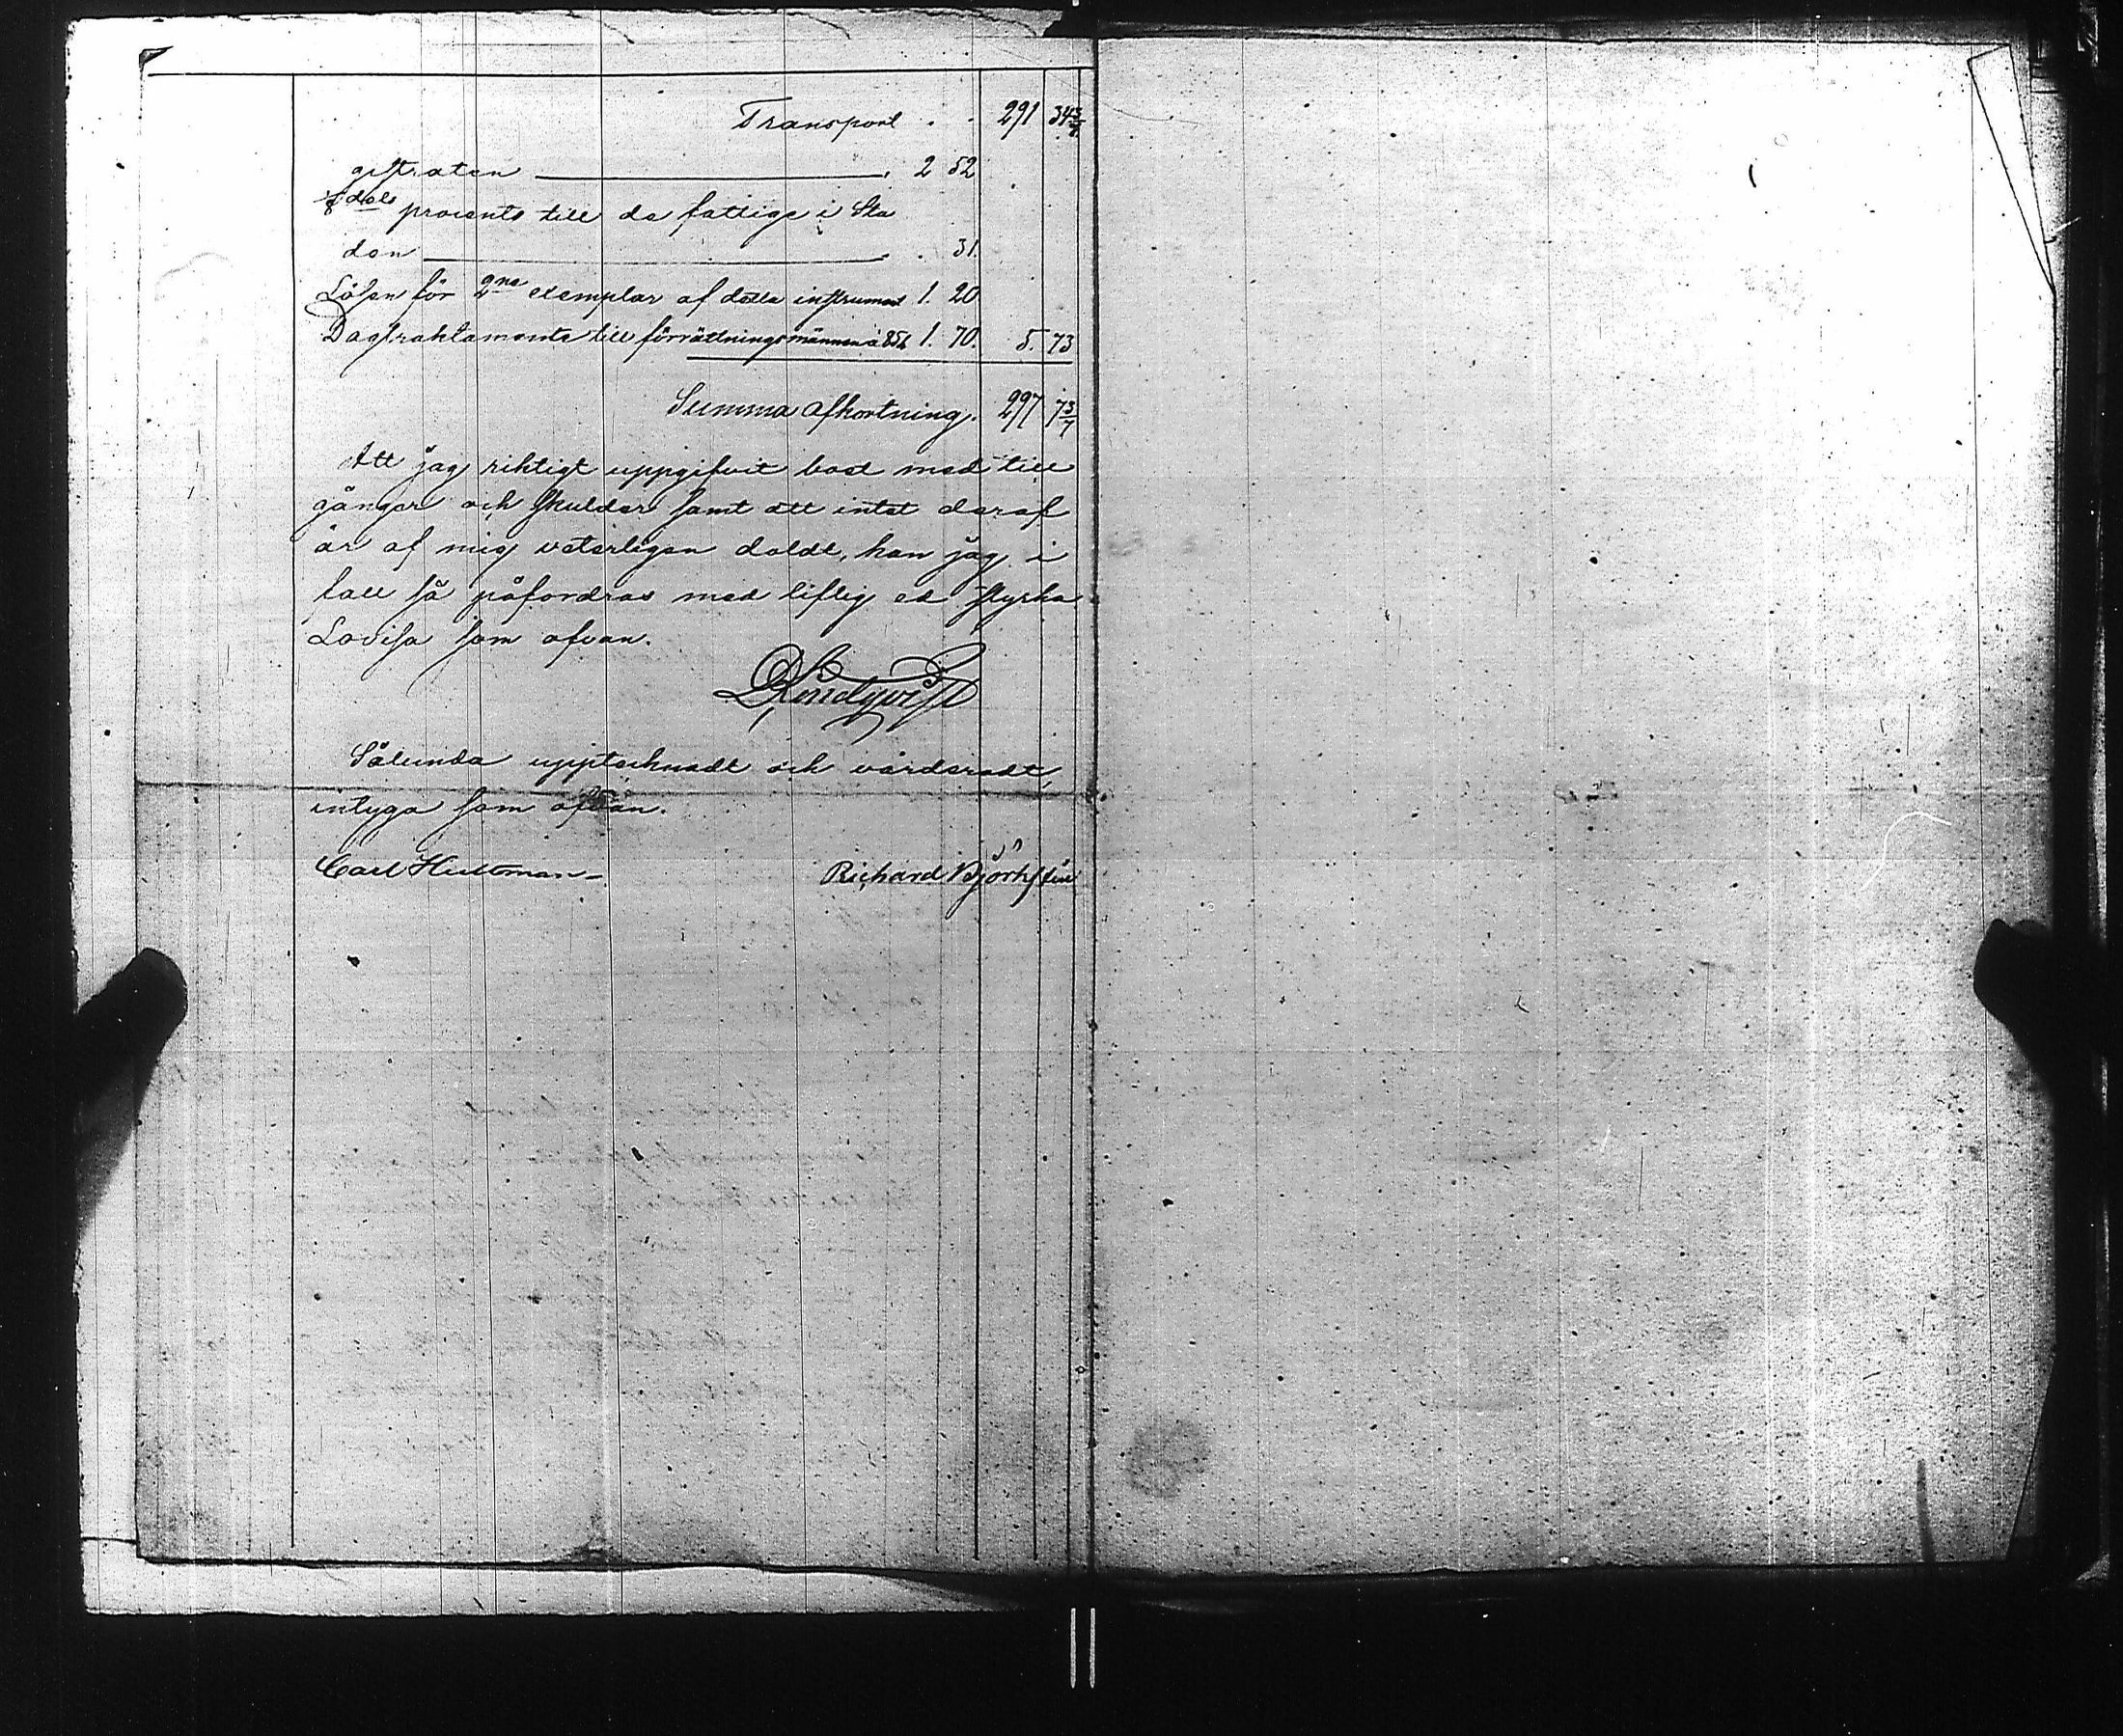 Transport . . 291 34 3/7
gistraten . 2 52
1/8 dels procents till de fattige i Sta
den . . 31.
Lösen för 2ne exemplar af detta instrument 1. 20
Dagtraktamente till förrättningsmännen à 85k 1. 70. 5. 73
Summa afkortning. 297 7 3/7
Att jag riktigt uppgifvit boet med till
gångar och skulder samt att intet deraf
är af mig veterligen doldt, kan jag i
fall så påfordras med liflig ed styrka
Lovisa som ofvan.
Lindqvist
Sålunda upptecknadt och värderadt,
intyga som ofvan.
Carl Hultman Richard Björksten